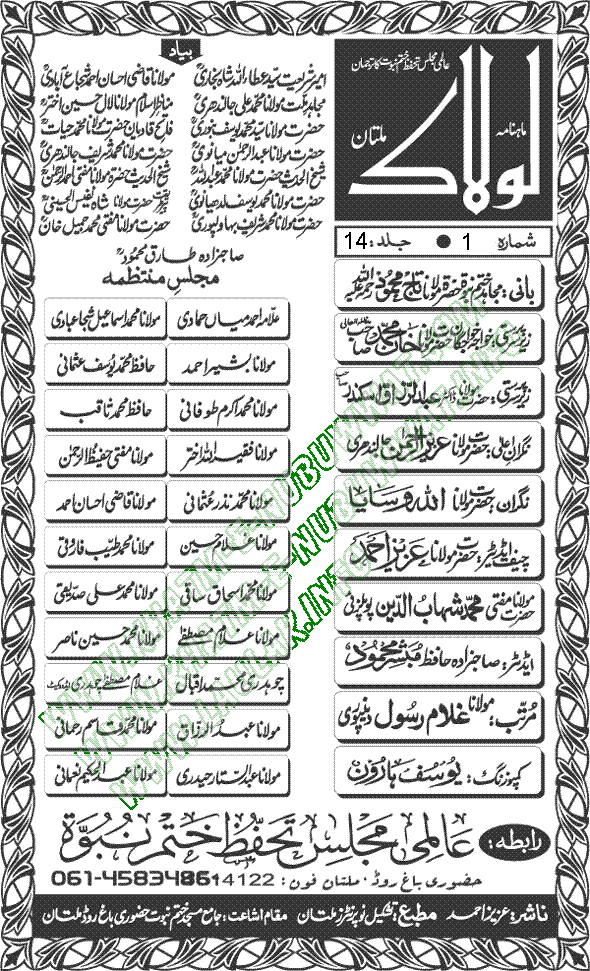 عالمی مجلس تحفظ ختم نبوت کا ترجمان
ماہنامہ
لولاک
ملتان
شمارہ 1 ● جلد: 14
بانی: مجاہد ختم نبوۃ حضرۃ مولانا تاج محمود رحمۃ اللہ علیہ
زیر سرپرستی: خواجہ خواجگان حضرت مولانا خان محمد صاحب
زیر سرپرستی: حضرت مولانا ڈاکٹر عبدالرزاق اسکندر صاحب
نگران اعلیٰ: حضرت مولانا عزیز الرحمٰن جالندھری
نگران: حضرت مولانا اللہ وسایا
چیف ایڈیٹر: حضرت مولانا عزیز احمد
حضرت مولانا مفتی محمد شہاب الدین پوپلزئی
ایڈیٹر: صاحبزادہ حافظ مبشر محمود
مرتب: مولانا غلام رسول دینپوری
کمپوزنگ: یوسف ہارون
بیاد
امیر شریعت سید عطاء اللہ شاہ بخاری مولانا قاضی احسان احمد شجاع آبادی
مجاہد ملت مولانا محمد علی جالندھری مناظر اسلام مولانا لال حسین اختر
حضرت مولانا سید محمد یوسف بنوری فاتح قادیان حضرت مولانا محمد حیات
حضرت مولانا عبدالرحمٰن میانوی حضرت مولانا محمد شریف جالندھری
شیخ الحدیث حضرت مولانا محمد عبداللہ شیخ الحدیث حضرۃ مولانا مفتی احمد الرحمٰن
حضرت مولانا محمد یوسف لدھیانوی حضرت مولانا شاہ نفیس الحسینی
حضرت مولانا محمد شریف بہاولپوری حضرت مولانا مفتی محمد جمیل خان
صاحبزادہ طارق محمود
مجلس منتظمہ
علامہ احمد میاں حمادی مولانا محمد اسماعیل شجاعبادی
مولانا بشیر احمد حافظ محمد یوسف عثمانی
مولانا محمد اکرم طوفانی حافظ محمد ثاقب
مولانا فقیر اللہ اختر مولانا مفتی حفیظ الرحمٰن
مولانا محمد نذر عثمانی مولانا قاضی احسان احمد
مولانا غلام حسین مولانا محمد طیب فاروقی
مولانا محمد اسحاق ساقی مولانا محمد علی صدیقی
مولانا غلام مصطفےٰ مولانا محمد حسین ناصر
چوہدری محمد اقبال غلام مصطفےٰ چوہدری ایڈووکیٹ
مولانا عبدالرزاق مولانا محمد قاسم رحمانی
مولانا عبدالستار حیدری مولانا عبدالحکیم نعمانی
رابطہ: عالمی مجلس تحفظ ختم نبوۃ
حضوری باغ روڈ، ملتان فون: 061-4583486
ناشر: عزیز احمد مطبع: تشکیل نو پرنٹرز ملتان مقام اشاعت: جامع مسجد ختم نبوت حضوری باغ روڈ ملتان